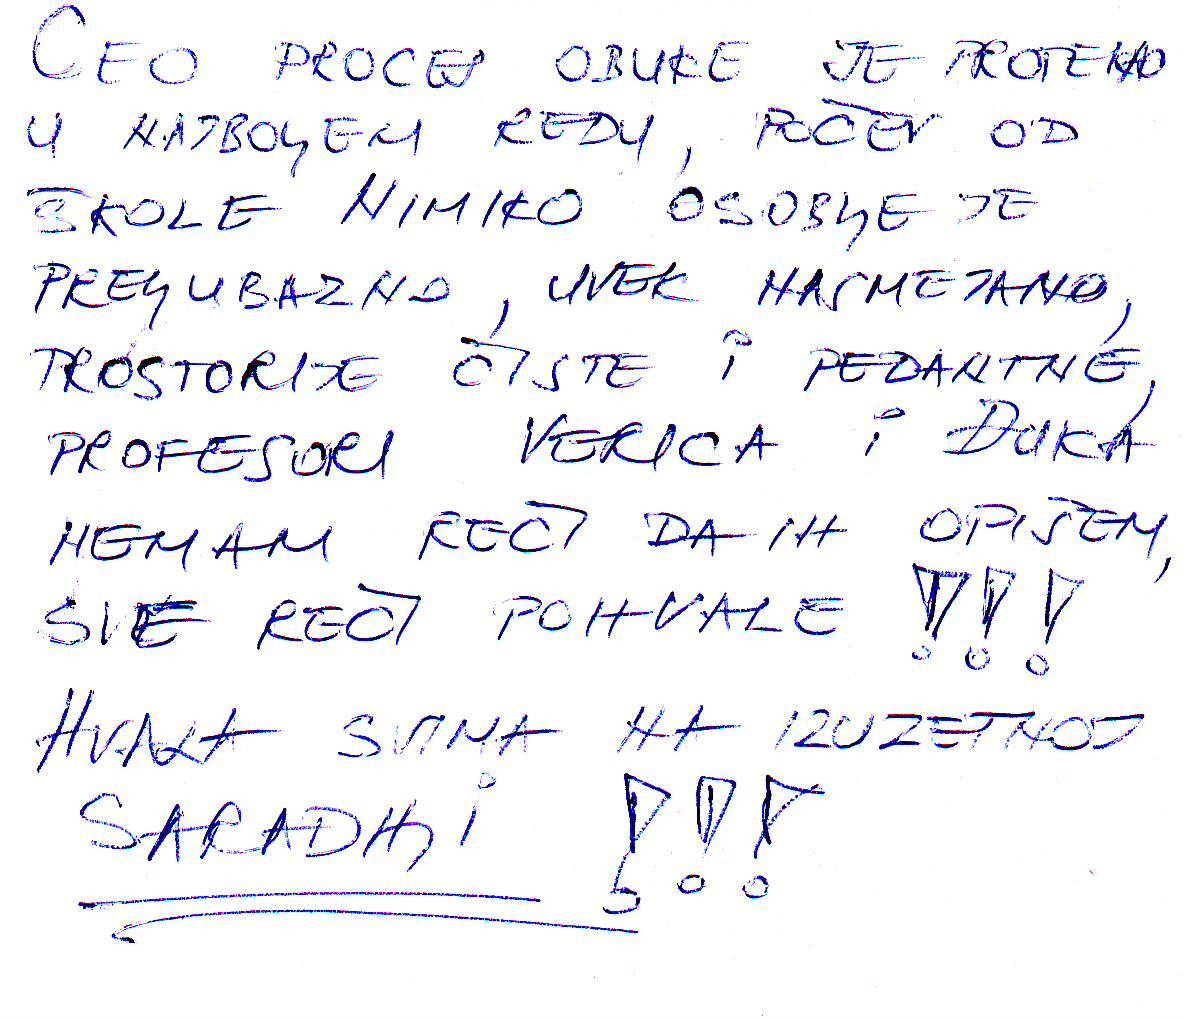 CEO PROCES OBUKE JE PROTEKAO
U NAJBOLJEM REDU, POČEV OD
ŠKOLE NIMIKO OSOBLJE JE
PRELJUBAZNO, UVEK NASMEJANO,
PROSTORIJE ČISTE I PEDANTNE,
PROFESORI VERICA I ĐUKA
NEMAM REČI DA IH OPIŠEM,
SVE REČI POHVALE !!!
HVALA SVIMA NA IZUZETNOJ
SARADNJI !!!